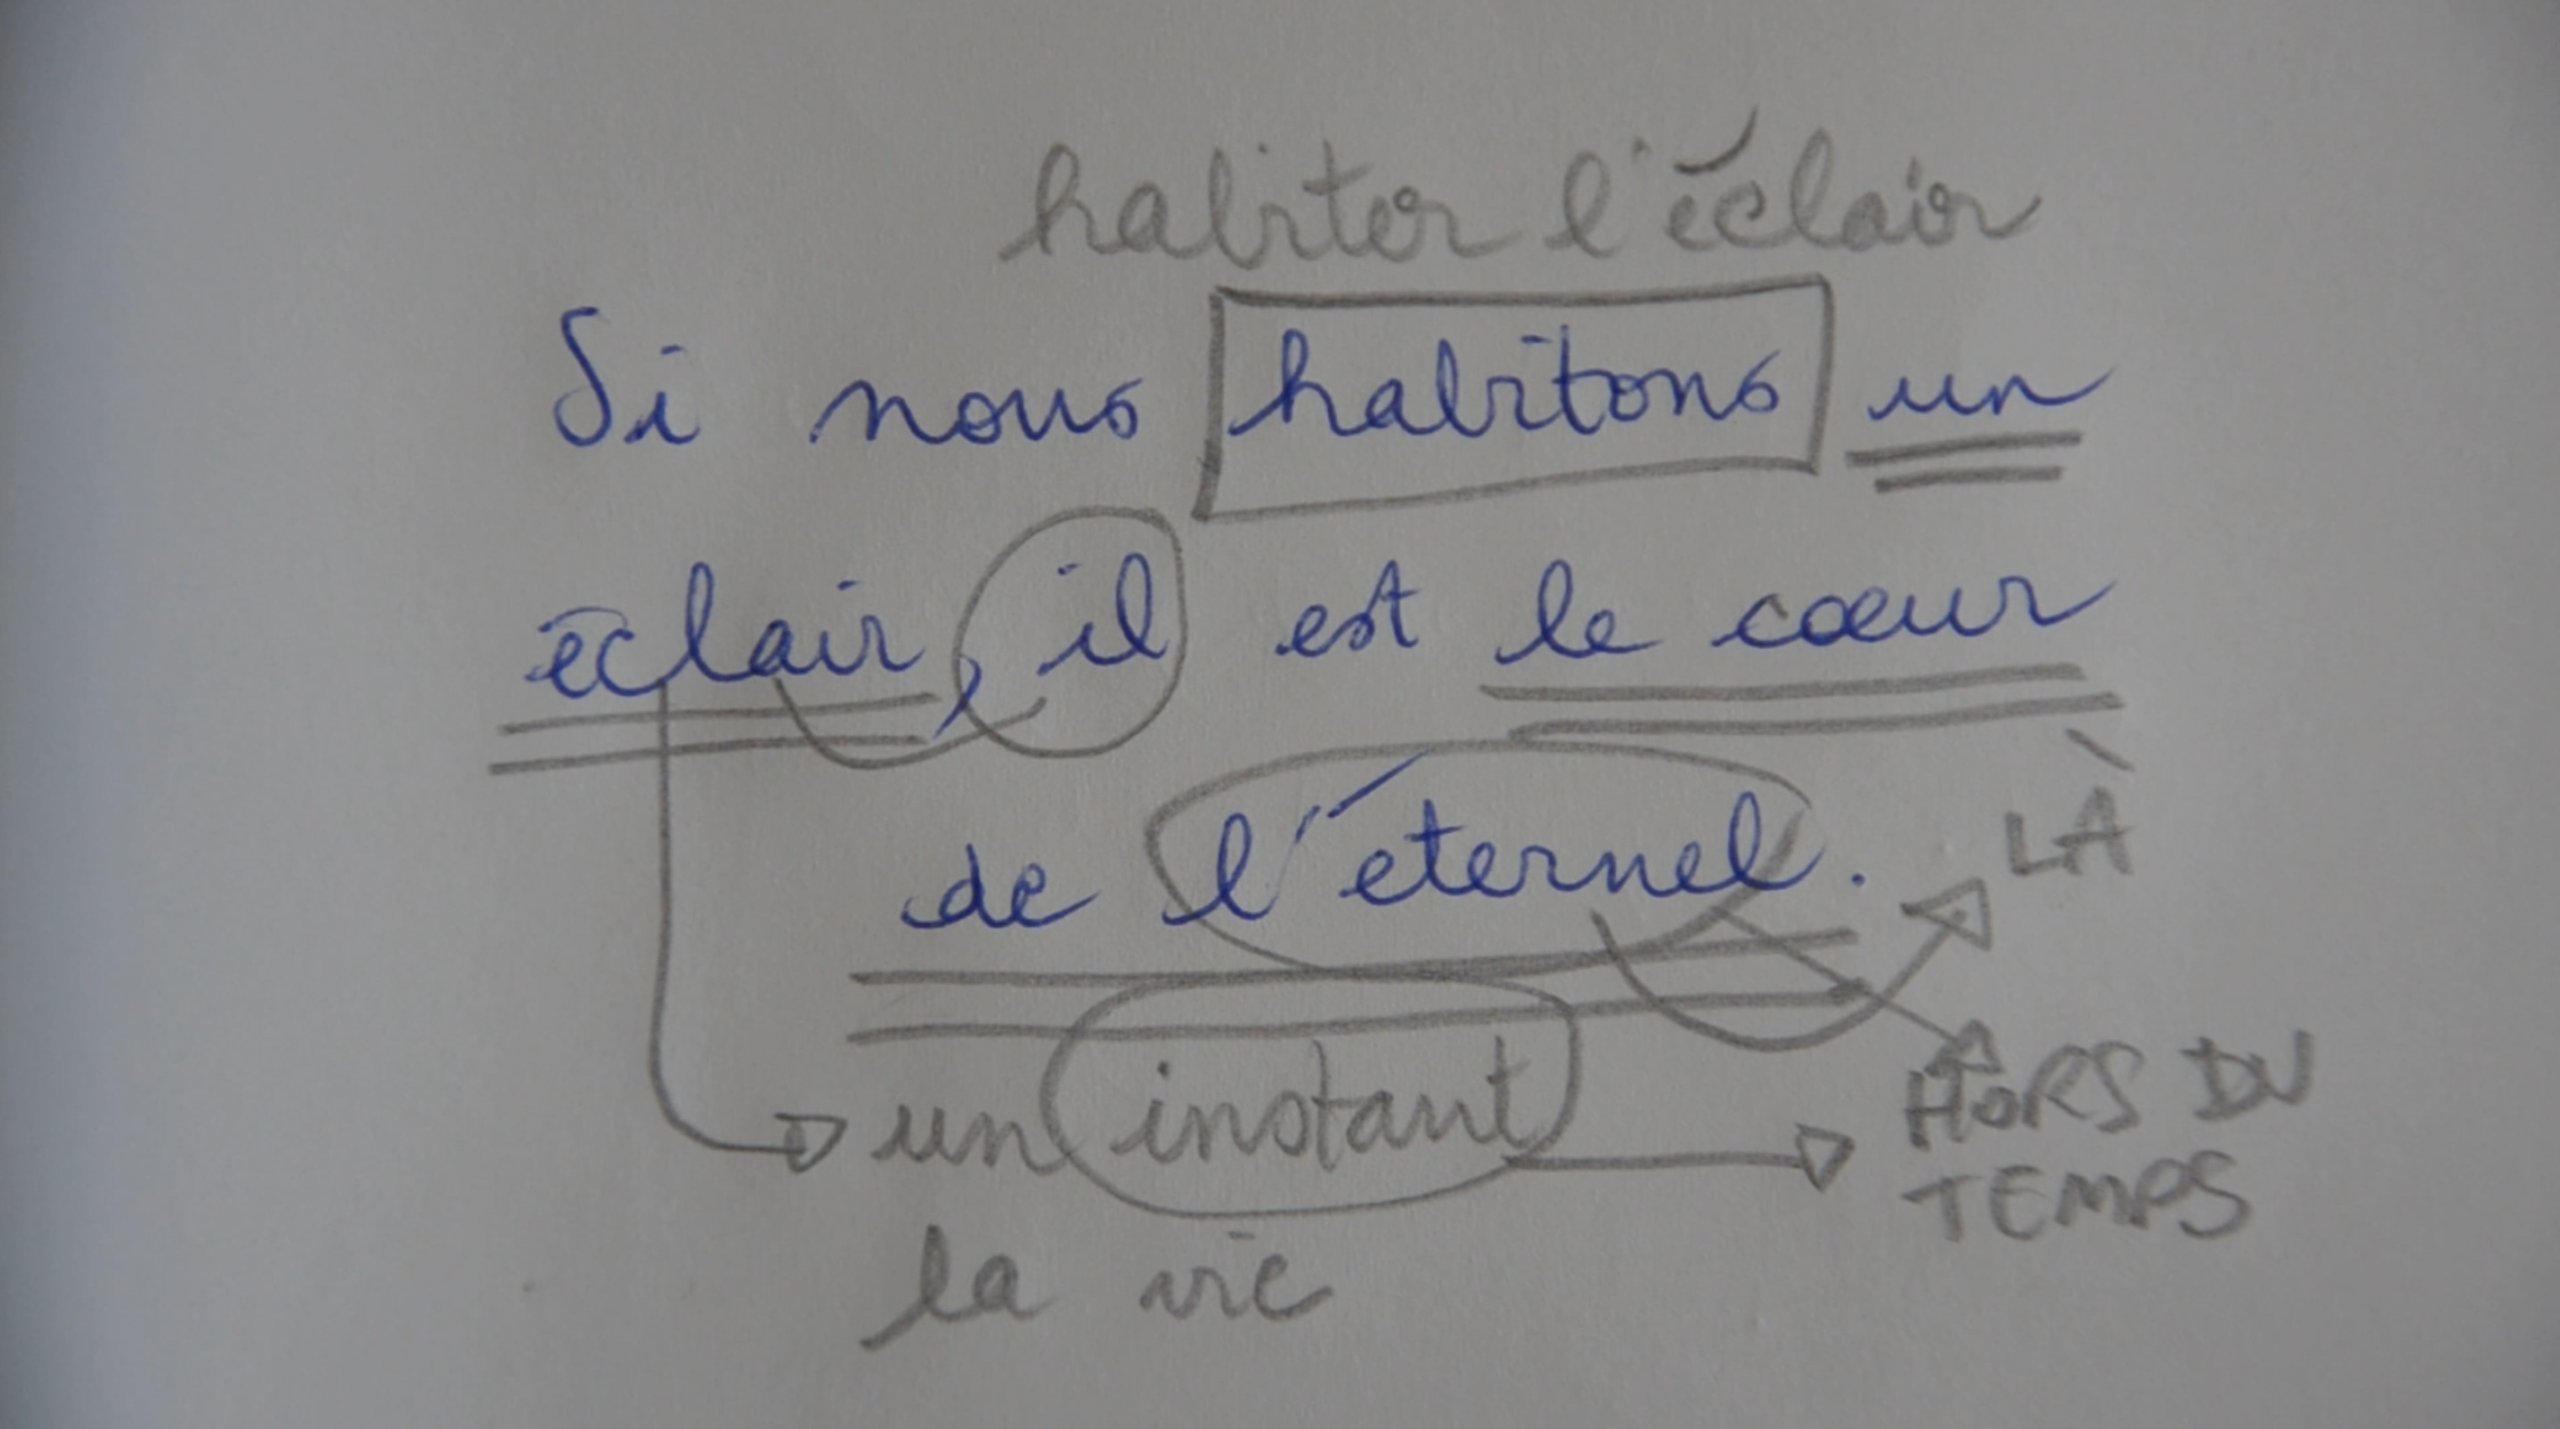 habiter l'éclair
Si nous habitons un
éclair, il est le cœur
de l'éternel.
LÀ
un instant
HORS DU
TEMPS
la vie